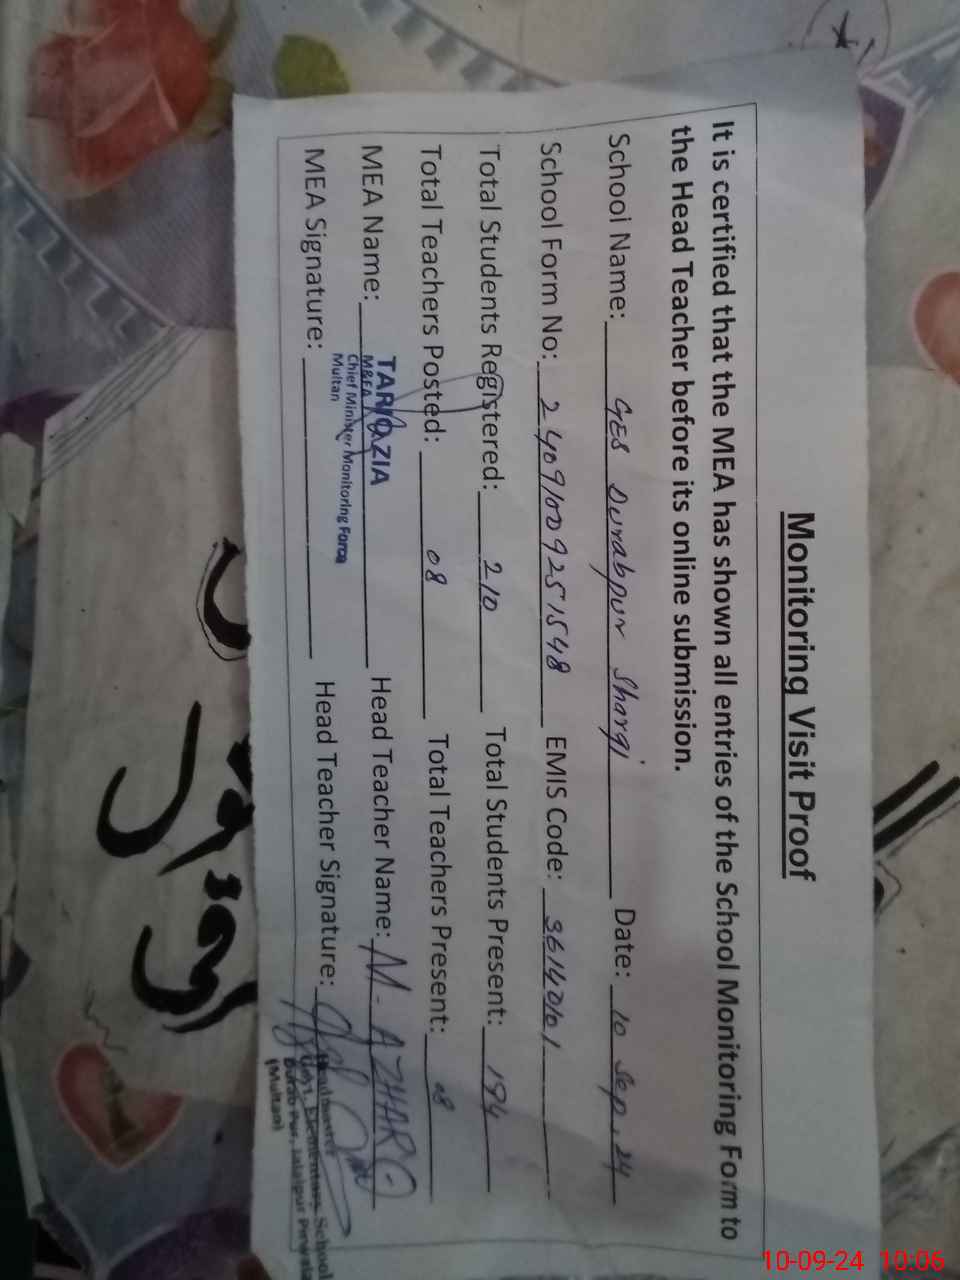 Monitoring Visit Proof
It is certified that the MEA has shown all entries of the School Monitoring Form to
the Head Teacher before its online submission.
School Name: GES Durabpur Sharqi Date: 10 Sep, 24
School Form No: 24091009251548 EMIS Code: 36140101
Total Students Registered: 210 Total Students Present: 194
Total Teachers Posted: 08 Total Teachers Present: 08
MEA Name: TARIQ ZIA Head Teacher Name: M. AZHAR
M&EA
Chief Minister Monitoring Force
Multan
MEA Signature: Head Teacher Signature:
Headmaster
Govt. Elementary School
Pur Jalalpur
(Multan)
10-09-24 10:06